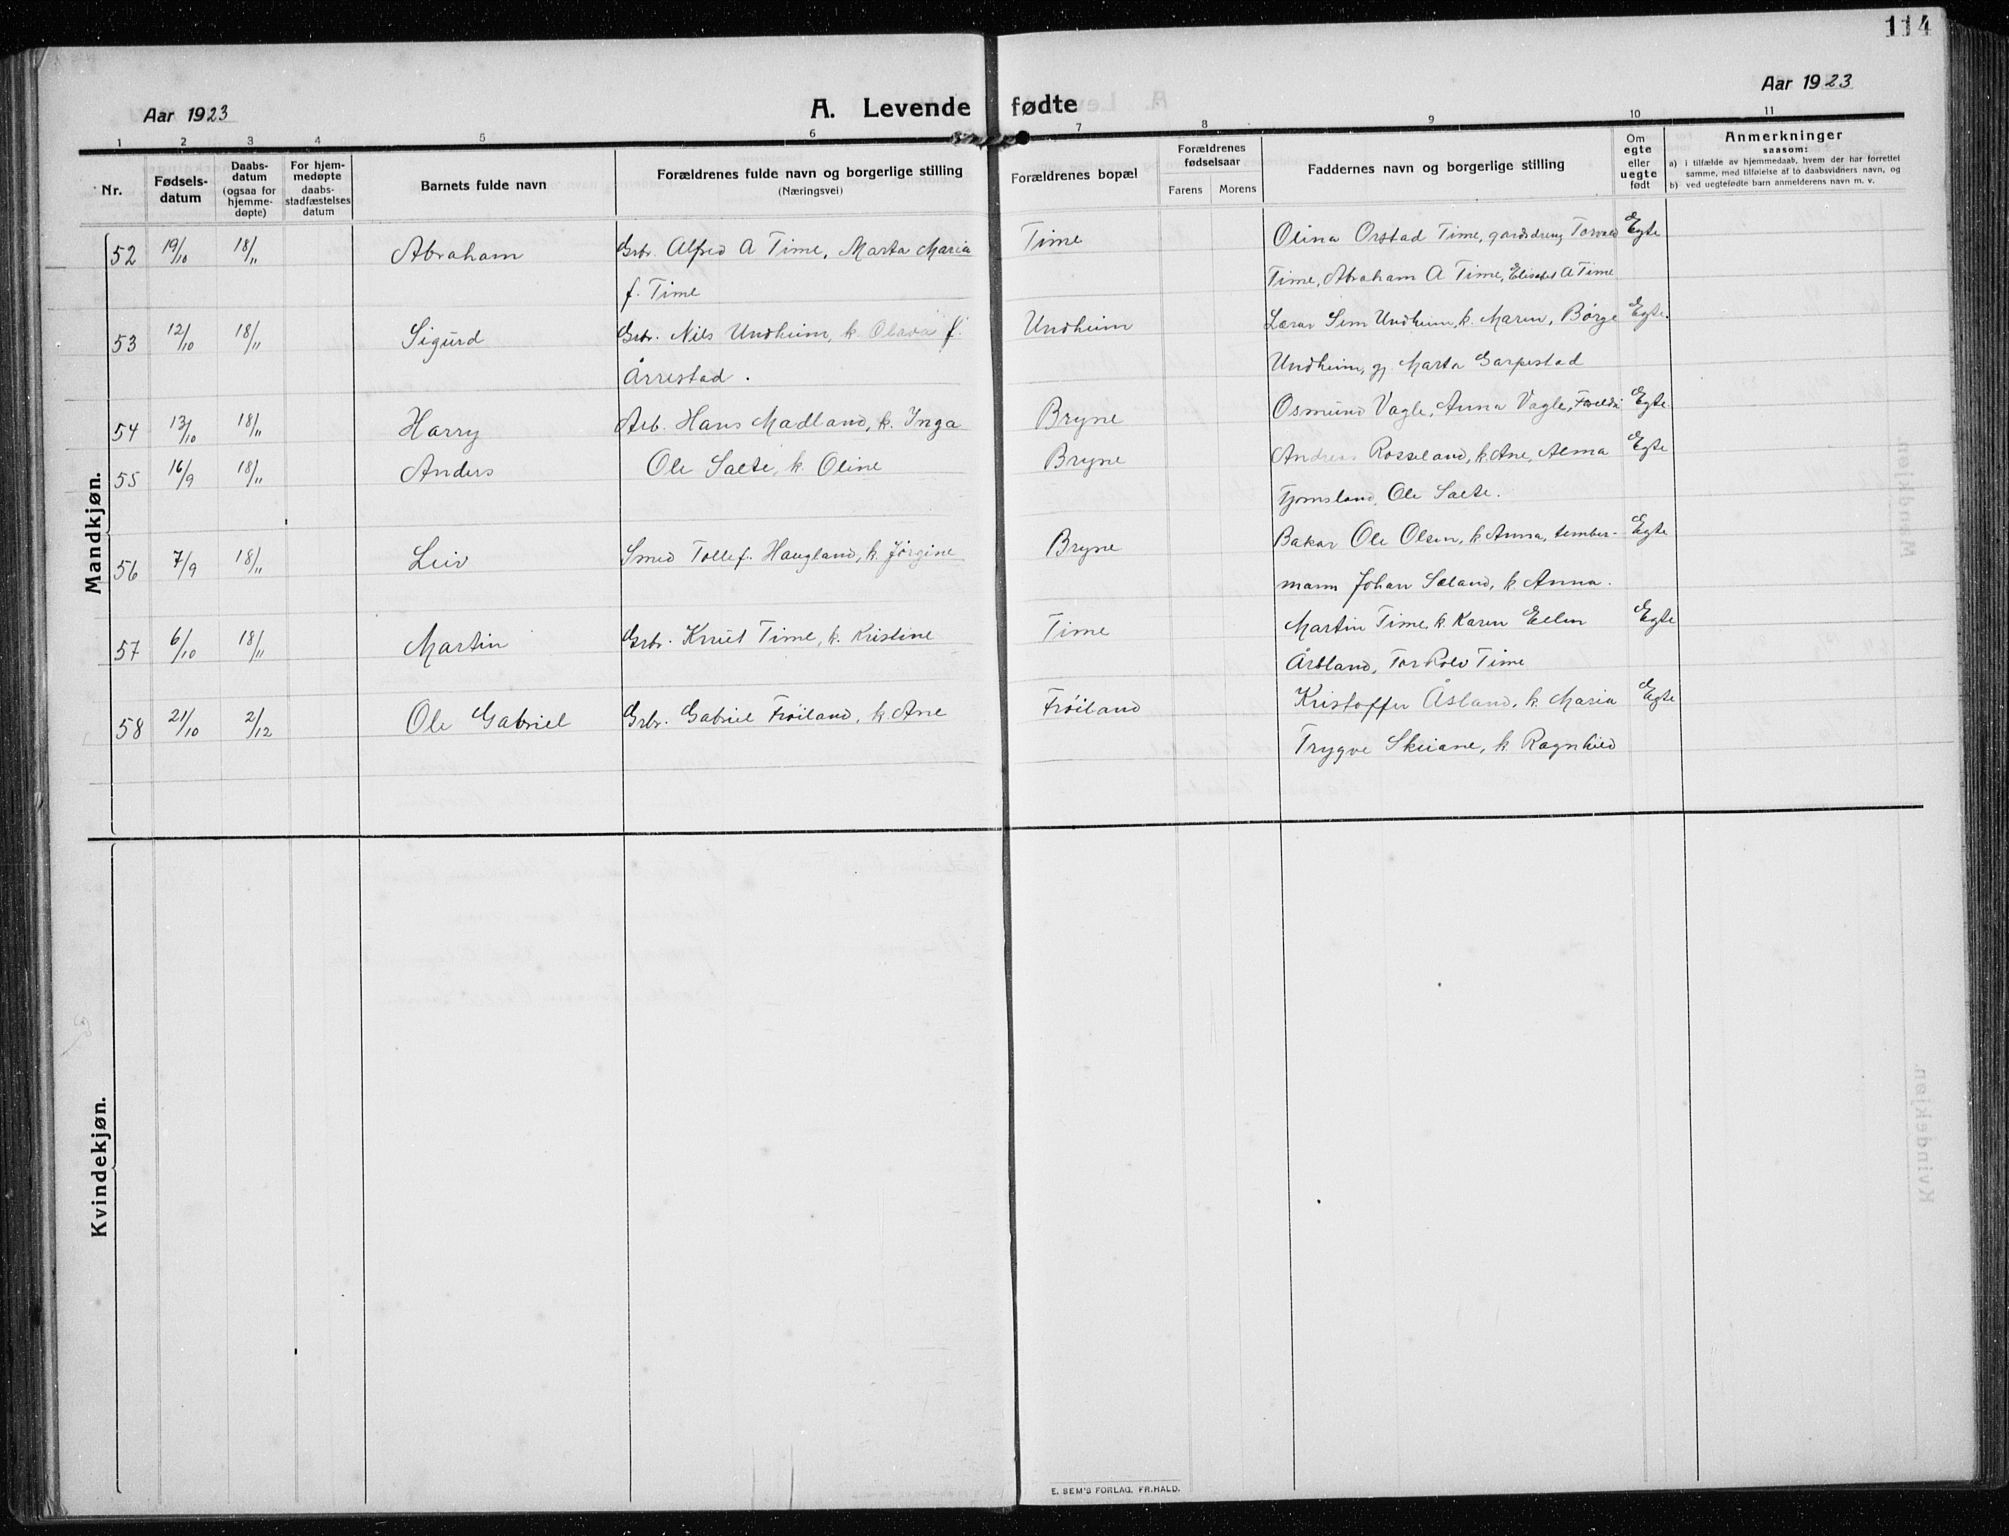 114
Aar 1923
A. Levende fødte
Aar 1923
1 2 3 4 5 6 7 8 9 10 11
Nr.
Fødsels-
datum
Daabs-
datum
(ogsaa for
hjemme-
døpte)
For hjem-
medøpte
daabs-
stadfæstelses
datum
Barnets fulde navn
Forældrenes fulde navn og borgerlige stilling
(Næringsvei)
Forældrenes bopæl
Forældrenes
fødselsaar
Farens Morens
Faddernes navn og borgerlige stilling
Om
egte
eller
uegte
født
Anmerkninger
saasom:
a) i tilfælde av hjemmedaab, hvem der har forrettet
samme, med tilføielse af to daabsvidners navn, og
b) ved uegtefødte barn anmelderens navn m. v.
Mandkjøn.
52 19/10 18/11 Abraham Grbr. Alfred A Time, Marta Maria Time Olina Orstad Time, gardsdreng Torvald Egte
f. Time Time, Abraham A Time, Elisabet A Time
53 12/10 18/11 Sigurd Grbr. Nils Undheim, k. Olava f. Undheim Lærar Sem Undheim, k. Maren, Børge Egte.
Årrestad. Undheim, gj Marta Garpestad
54 13/10 18/11 Harry Arb. Hans Madland, k. Inga Bryne Osmund Vagle, Anna Vagle, Egte
55 16/9 18/11 Anders Ole Salte, k. Oline Bryne Andreas Rosseland, k. Ane, Alma Egte
Tjomsland, Ole Salte.
56 7/9 18/11 Leiv Smed Tollef. Haugland, k. Jørgine Bryne Bakar Ole Olsen, k Anna, tember- Egte
mann Johan Sæland, k Anna.
57 6/10 18/11 Martin Grbr. Knut Time, k. Kristine Time Martin Time, k. Karen Ellen Egte
Årbland, Tor Rolv Time
58 21/10 2/12 Ole Gabriel Grbr. Gabriel Frøiland, k Ane Frøiland Kristoffer Åsland, k. Maria Egte
Trygve Skeiane, k Ragnhild
Kvindekjøn.
E. SEM'S FORLAG, FR.HALD.